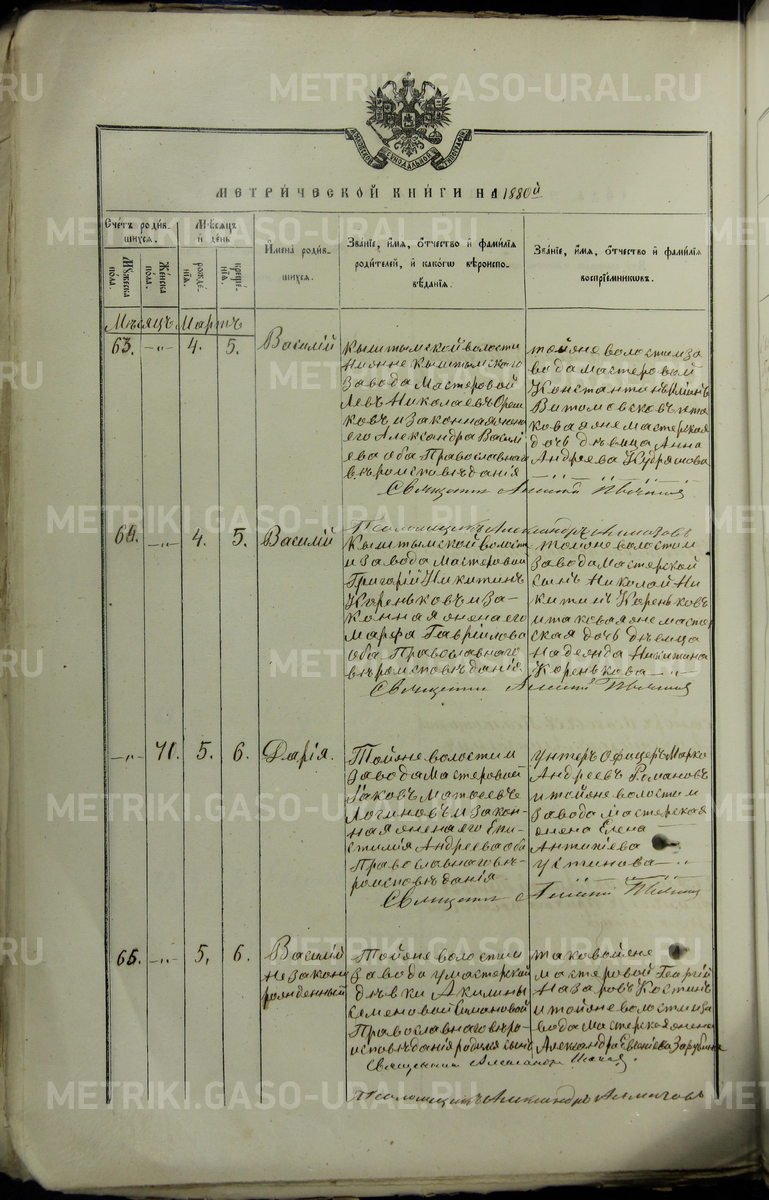 METRIKI.GASO-URAL.RU
МОСКОВСКОЙ СѴНОДАЛЬНОЙ ТИПОГРАФІИ
МЕТРИЧЕСКОЙ КНИГИ НА 1880й
Счетъ родившихся.
Мужеска пола.
Женска пола.
Мѣсяцъ и день
рожденія.
крещенія.
Имена родившихся.
Званіе, имя, отчество и фамилія
родителей, и какогѡ вѣроиспо-
вѣданія.
Званіе, имя, отчество и фамилія
воспріемниковъ.
Мѣсяцъ Мартъ
63. —„— 4. 5. Василій
Кыштымской волости
Нижне Кыштымскаго
завода Мастеровой
Левъ Николаевъ
ковъ и законная жена
его Александра Василі
ева оба Православнаго
вѣроисповѣданія
тойже волости и за
вода мастеровый
Константинъ
и та
коваяже мастерская
дочь дѣвица Анна
Андреева Кудряшова
Священникъ
Псаломщикъ Александръ
64. —„— 4. 5. Василій
Кыштымской волости
и завода мастеровой
Григорій Никитинъ
Кореньковъ и за-
конная жена его
Марфа Гавріилова
оба Православнаго
вѣроисповѣданія
тойже волости и
завода мастерской
сынъ Николай Ни
китинъ Кореньковъ
и таковаяже мастер
ская дочь дѣвица
Надежда Никитина
Коренькова —„
Священникъ
—„— 71. 5. 6. Дарія.
Тойже волости и
завода Мастеровой
Іаковъ Матѳеевъ
Логиновъ и закон-
ная жена его Епи-
стимія Андреева оба
Православнаго вѣ-
роисповѣданія
Унтеръ Офицеръ Марко
Андреевъ Романовъ
и тойже волости и
завода мастерская
жена Елена
Антипіева
Устинова —„
Священникъ
65. —„— 5. 6. Василій
незаконно
рожденный
Тойже волости и
завода у мастерской
дѣвки Акилины
Семеновой Симановой
Православнаго вѣро
исповѣданія родился сынъ
таковойже
мастеровой Георгій
Назаровъ Костинъ
и тойже волости и за
вода мастерская жена
Александра Евгеніева Зарубина
Священникъ Александръ
Псаломщикъ Александръ